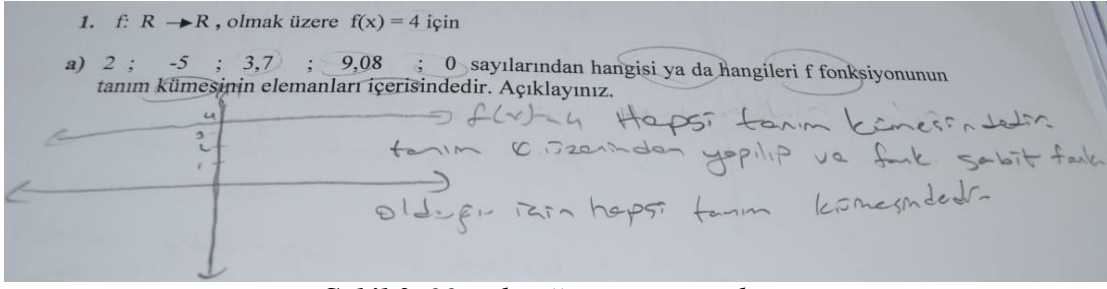 1. f: R → R , olmak üzere f(x) = 4 için
a) 2 ; -5 ; 3,7 ; 9,08 ; 0 sayılarından hangisi ya da hangileri f fonksiyonunun
tanım kümesinin elemanları içerisindedir. Açıklayınız.
4
3
2
1
f(x)=4 Hepsi tanım kümesindedir.
tanım üzerinden yapılıp ve fonk. sabit fonk.
olduğu için hepsi tanım kümesindedir.